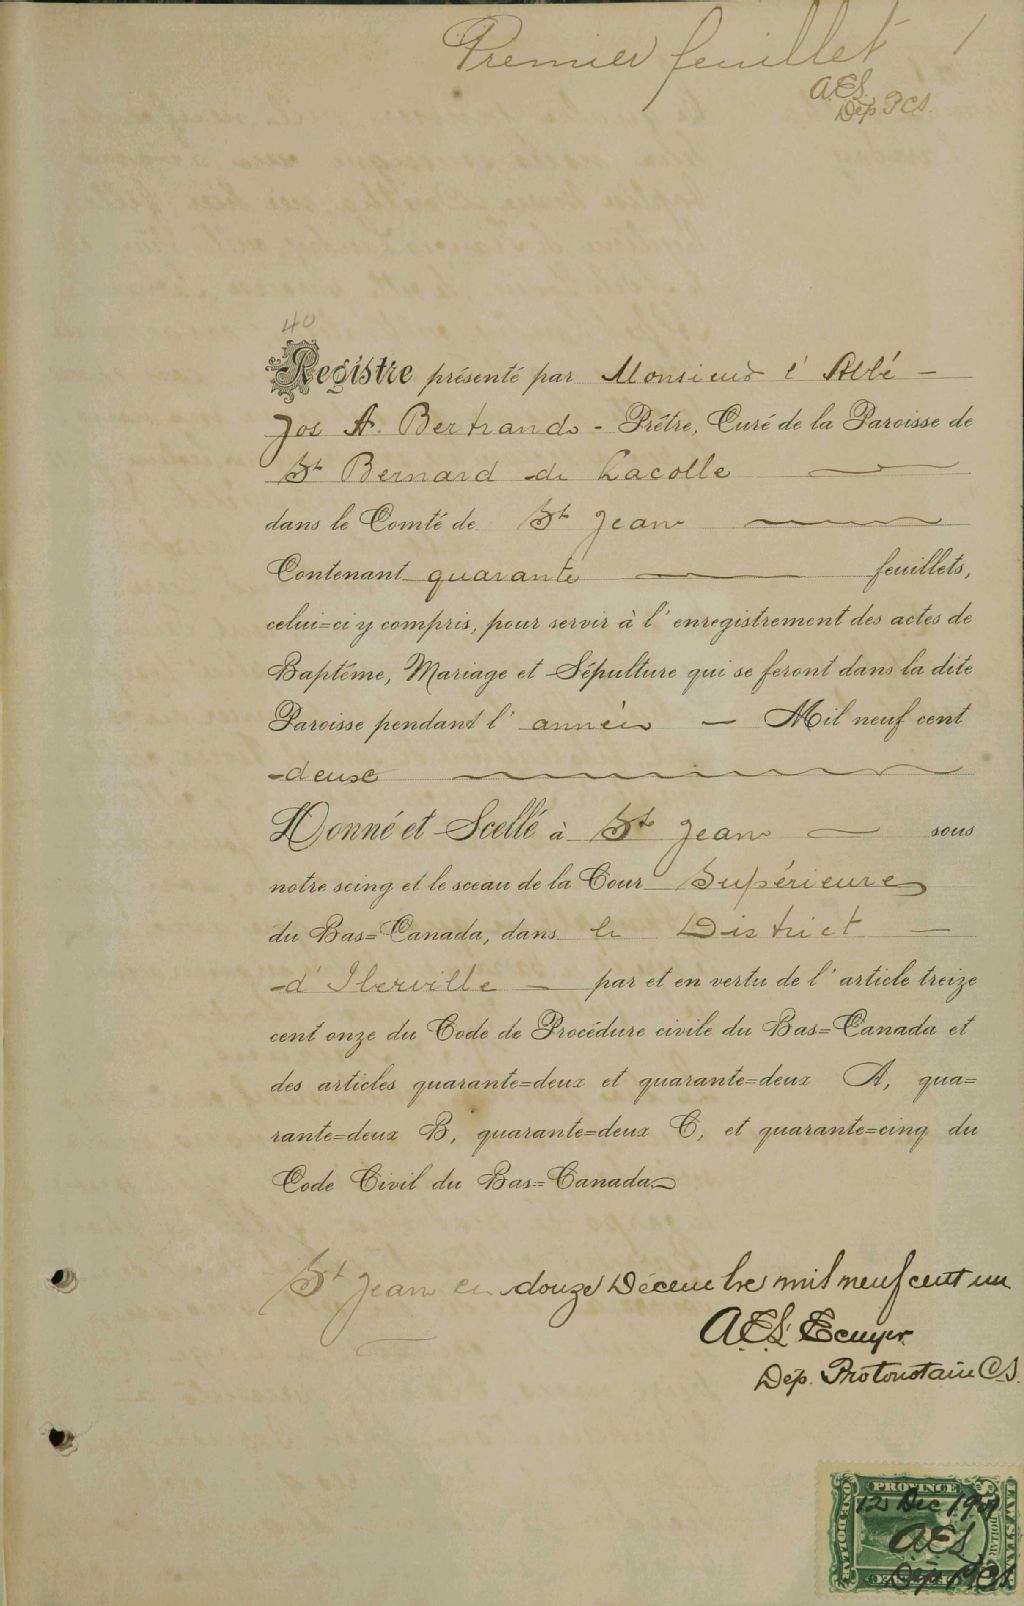 Premier feuillet 1
A.E.S.
Dép P.C.S.
40
Registre présenté par Monsieur l'Abbé -
Jos A. Bertrand - Prêtre, Curé de la Paroisse de
St Bernard de Lacolle
dans le Comté de St Jean
Contenant quarante feuillets,
celui=ci y compris, pour servir à l'enregistrement des actes de
Baptême, Mariage et Sépulture qui se feront dans la dite
Paroisse pendant l'année - Mil neuf cent
-deuxe
Donné et Scellé à St Jean - sous
notre seing et le sceau de la Cour Supérieure
du Bas=Canada, dans le District -
-d'Iberville - par et en vertu de l'article treize
cent onze du Code de Procédure civile du Bas=Canada et
des articles quarante=deux et quarante=deux A, qua=
rante=deux B, quarante=deux C, et quarante=cinq du
Code Civil du Bas=Canada
St Jean ce douze Décembre mil neuf cent un
A.E.S. Ecuyer
Dép. Protonotaire C.S.
PROVINCE
LAW STAMP
ONE DOLLAR
DOLLAR
12 Dec 1901
A.E.S
Dép P.C.S